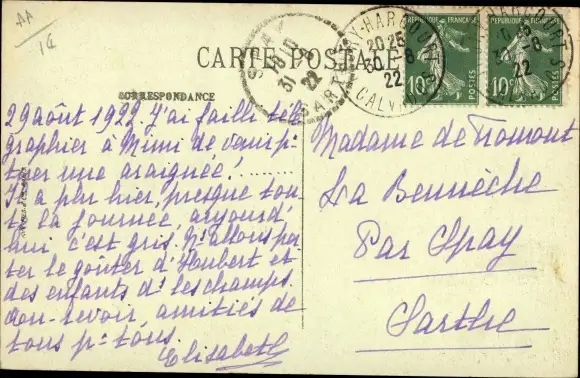 AA
1€
CARTE POSTALE
CORRESPONDANCE
29 août 1922 J'ai failli télé
graphier à Mimi de venir
tuer une araignée!
Il a plu hier, presque tou-
te la journée, aujourd'
hui c'est gris. Ns allons por
ter le goûter d'Houbert et
des enfants ds les champs.
Au-revoir, amitiés de
tous pr tous.
Elisabeth
Madame de Fromont
La Bennèche
Par Spay
Sarthe
SPAY
18 10
31 8
22
SARTHE
THURY-HARCOURT
20 25
30 - 8
22
CALVADOS
REPUBLIQUE FRANÇAISE
10c
POSTES
REPUBLIQUE FRANÇAISE
10c
POSTES